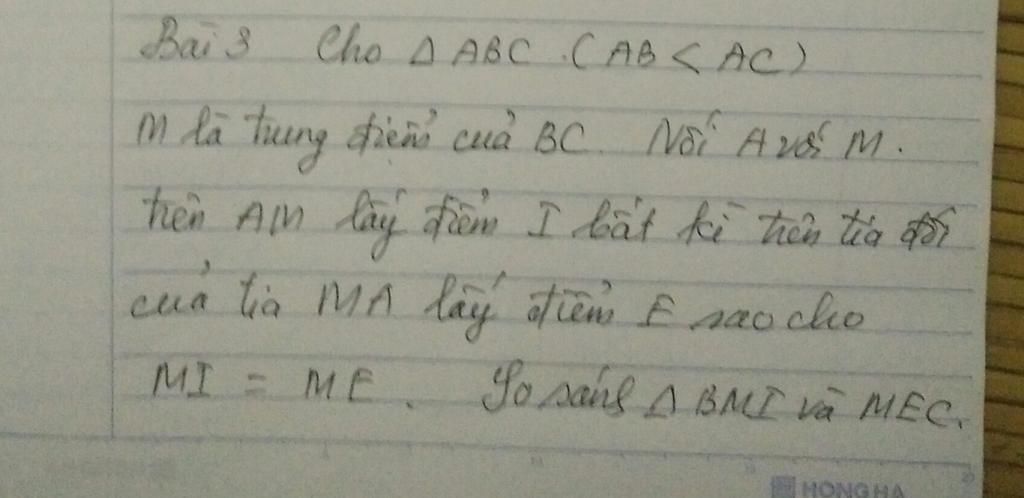 Bài 3 Cho Δ ABC . (AB < AC)
M là trung điểm của BC. Nối A với M.
trên AM lấy điểm I bất kì trên tia đối
của tia MA lấy điểm E sao cho
MI = ME. So sánh Δ BMI và MEC.
HONG HA